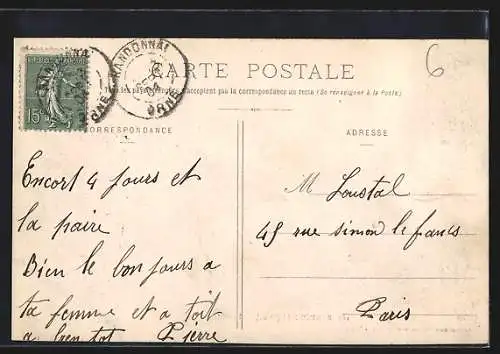 RANDONNAI
ORNE
6
CARTE POSTALE
Tous les pays étrangers n'acceptent pas la correspondance au recto (Se renseigner à la Poste)
15c
CORRESPONDANCE
ADRESSE
Encort 4 jours et
la paire
Bien le bonjours a
ta femme et a toit
a bien tot Pierre
M Loustal
45 rue simon le francs
Paris